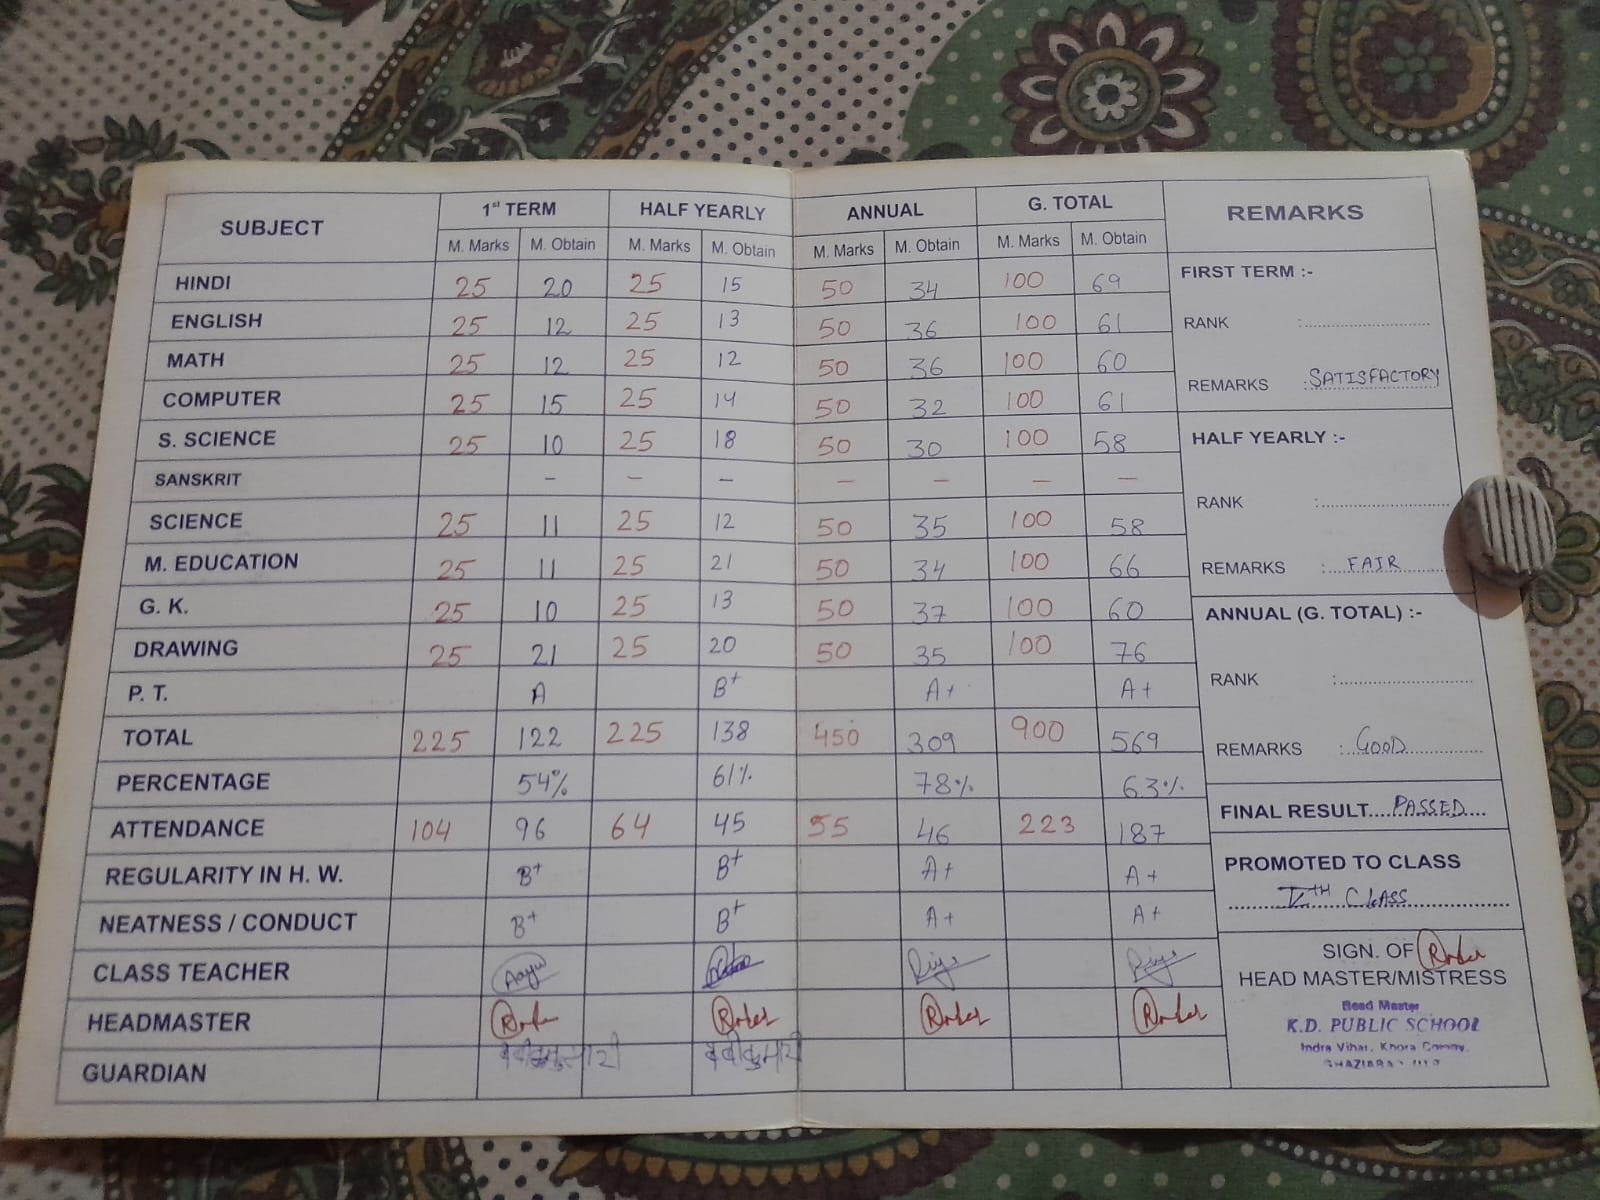 SUBJECT 1st TERM HALF YEARLY ANNUAL G. TOTAL REMARKS
M. Marks M. Obtain M. Marks M. Obtain M. Marks M. Obtain M. Marks M. Obtain
HINDI 25 20 25 15 50 34 100 69
ENGLISH 25 12 25 13 50 36 100 61
MATH 25 12 25 12 50 36 100 60
COMPUTER 25 15 25 14 50 32 100 61
S. SCIENCE 25 10 25 18 50 30 100 58
SANSKRIT - - - - - - -
SCIENCE 25 11 25 12 50 35 100 58
M. EDUCATION 25 11 25 21 50 34 100 66
G. K. 25 10 25 13 50 37 100 60
DRAWING 25 21 25 20 50 35 100 76
P. T. A B+ A+ A+
TOTAL 225 122 225 138 450 309 900 569
PERCENTAGE 54% 61% 78% 63%
ATTENDANCE 104 96 64 45 55 46 223 187
REGULARITY IN H. W. B+ B+ A+ A+
NEATNESS / CONDUCT B+ B+ A+ A+
CLASS TEACHER
HEADMASTER
GUARDIAN
FIRST TERM :-
RANK :
REMARKS : SATISFACTORY
HALF YEARLY :-
RANK :
REMARKS : FAIR
ANNUAL (G. TOTAL) :-
RANK :
REMARKS : GOOD
FINAL RESULT PASSED
PROMOTED TO CLASS
VTH CLASS
SIGN. OF
HEAD MASTER/MISTRESS
Head Master
K.D. PUBLIC SCHOOL
Indra Vihar, Khora